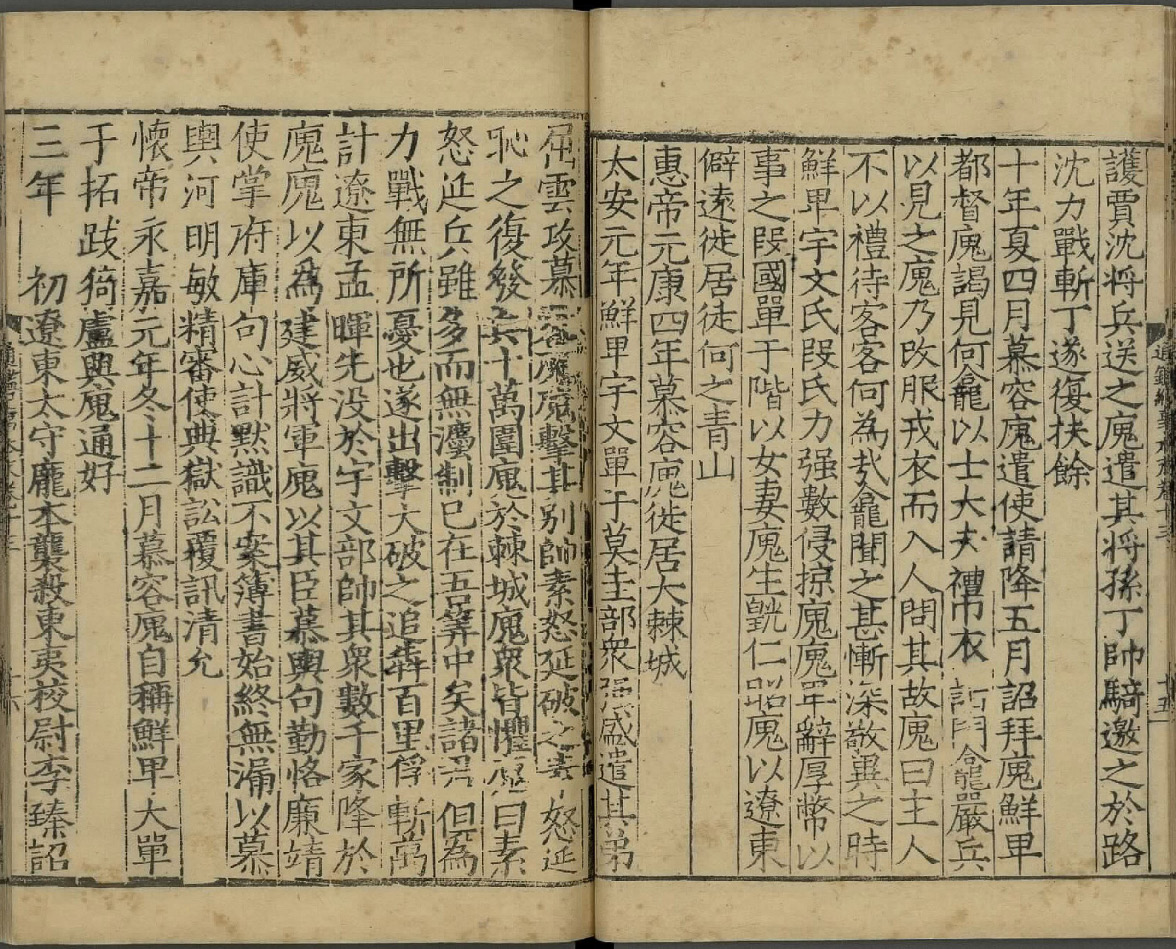 護賈沈将兵送之廆遣其将孫丁帥騎邀之於路
沈力戰斬丁遂復扶餘
十年夏四月慕容廆遣使請降五月詔拜廆鮮卑
都督廆謁見何龕以士大夫禮巾衣詣門龕嚴兵
以見之廆乃改服戎衣而入人問其故廆曰主人
不以禮待客客何為㢤龕聞之甚慚深敬異之時
鮮卑宇文氏段氏力强數侵掠廆廆卑辭厚幣以
事之段國單于階以女妻廆生皝仁昭廆以遼東
僻遠徙居徒何之青山
惠帝元康四年慕容廆徙居大棘城
太安元年鮮卑宇文單于莫圭部衆强盛遣其弟
屈雲攻慕容廆廆擊其别帥素怒延破之素怒延
恥之復發兵十萬圍廆於棘城廆衆皆懼廆曰素
怒延兵雖多而無灋制已在吾筭中矣諸君但為
力戰無所憂也遂出擊大破之追犇百里俘斬萬
計遼東孟暉先没於宇文部帥其衆數千家降於
廆廆以為建威將軍廆以其臣慕輿句勤恪廉靖
使掌府庫句心計默識不案簿書始終無漏以慕
輿河明敏精審使典獄訟覆訊清允
懷帝永嘉元年冬十二月慕容廆自稱鮮卑大單
于拓跋猗盧與廆通好
三年　初遼東太守龐本襲殺東夷校尉李臻詔